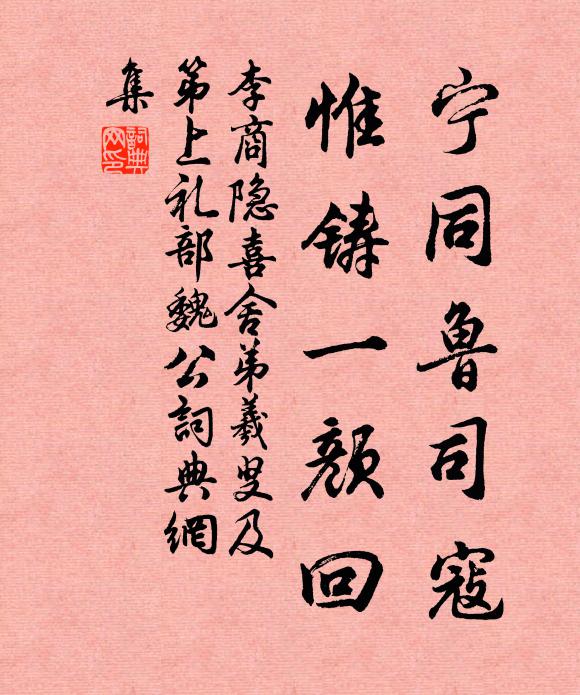 宁同鲁司寇
惟铸一颜回
李商隐喜舍弟羲叟及
第上礼部魏公詞典網
集
詞典网印